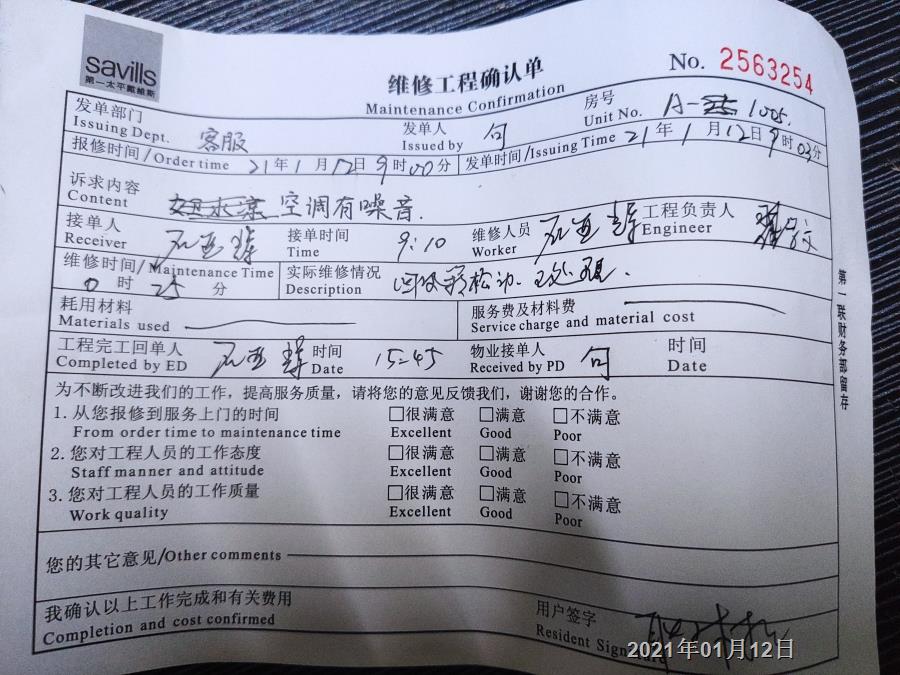 savills
第一太平戴維斯
维修工程确认单
Maintenance Confirmation
No. 2563254
发单部门 客服 发单人 句 房号 A- 1005.
Issuing Dept. Issued by Unit No.
报修时间/Order time 21年1月12日9时00分 发单时间/Issuing Time 21年1月12日9时03分
诉求内容 空调有噪音.
Content
接单人 接单时间 9:10 维修人员 工程负责人
Receiver Time Worker Engineer
维修时间/Maintenance Time 实际维修情况
0时25分 Description
耗用材料 服务费及材料费
Materials used Service charge and material cost
工程完工回单人 时间 15:45 物业接单人 句 时间
Completed by ED Date Received by PD Date
为不断改进我们的工作，提高服务质量，请将您的意见反馈我们，谢谢您的合作。
1. 从您报修到服务上门的时间 □很满意 □满意 □不满意
From order time to maintenance time Excellent Good Poor
2. 您对工程人员的工作态度 □很满意 □满意 □不满意
Staff manner and attitude Excellent Good Poor
3. 您对工程人员的工作质量 □很满意 □满意 □不满意
Work quality Excellent Good Poor
您的其它意见/Other comments
我确认以上工作完成和有关费用 用户签字
Completion and cost confirmed Resident Signature
第一联财务部留存
2021年01月12日